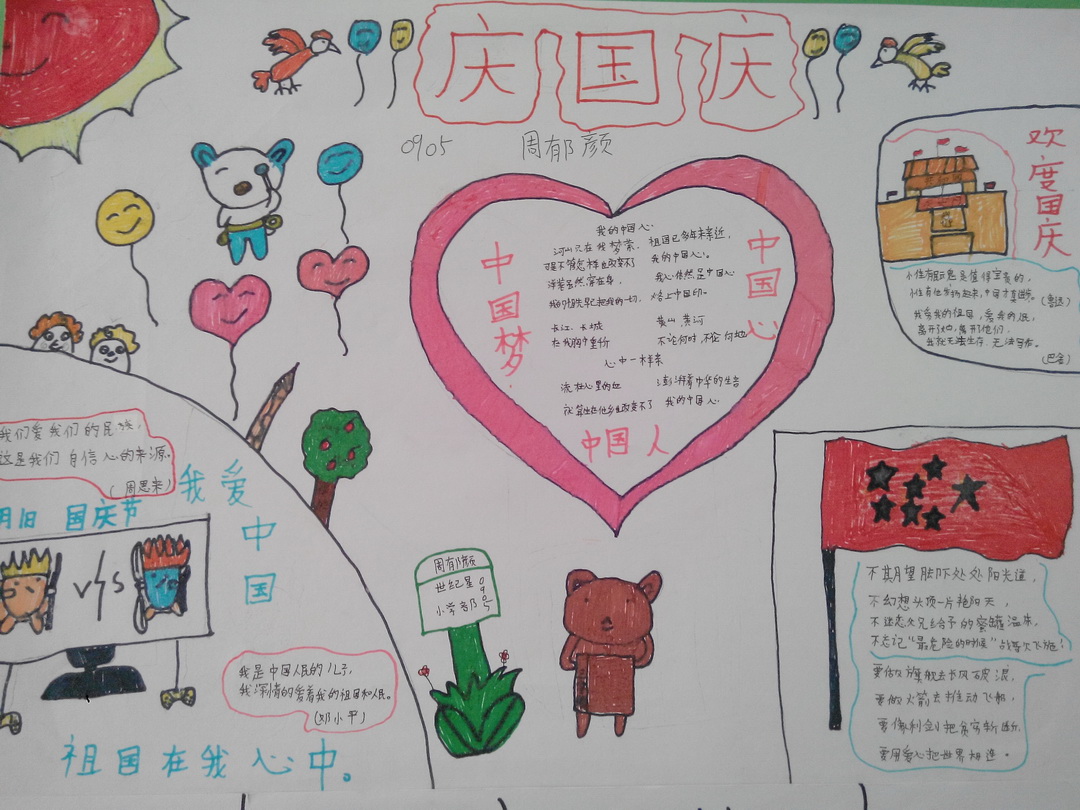 庆国庆
0905 周郁颜
欢度国庆
我的中国心
河山只在我梦萦, 祖国已多年未亲近,
可是不管怎样也改变不了 我的中国心。
洋装虽然穿在身, 我心依然是中国心
我的祖先早已把我的一切, 烙上中国印。
长江、长城 黄山、黄河
在我胸中重千斤 不论何时, 不论何地
心中一样亲
流在心里的血 澎湃着中华的生音
就算生在他乡也改变不了 我的中国心
中国梦
中国心
中国人
我爱我的祖国, 爱我的人民,
离开了她, 离开了他们,
我就无法生存, 无法写作。
(巴金)
(鲁迅)
我们爱我们的民族,
这是我们自信心的来源。
(周恩来)
我爱中国
国庆节
VS
我是中国人民的儿子,
我深情的爱着我的祖国和人民。
(邓小平)
祖国在我心中。
周郁颜
世纪星
小学部
0905
不期望脚下处处阳光道,
不幻想头顶一片艳阳天,
不迷恋父兄给予的蜜罐温床,
不忘记"最危险的时候"战鼓
要做旗舰去长风破浪,
要做火箭去推动飞船,
要像利剑把贫穷斩断,
要用爱心把世界相连。